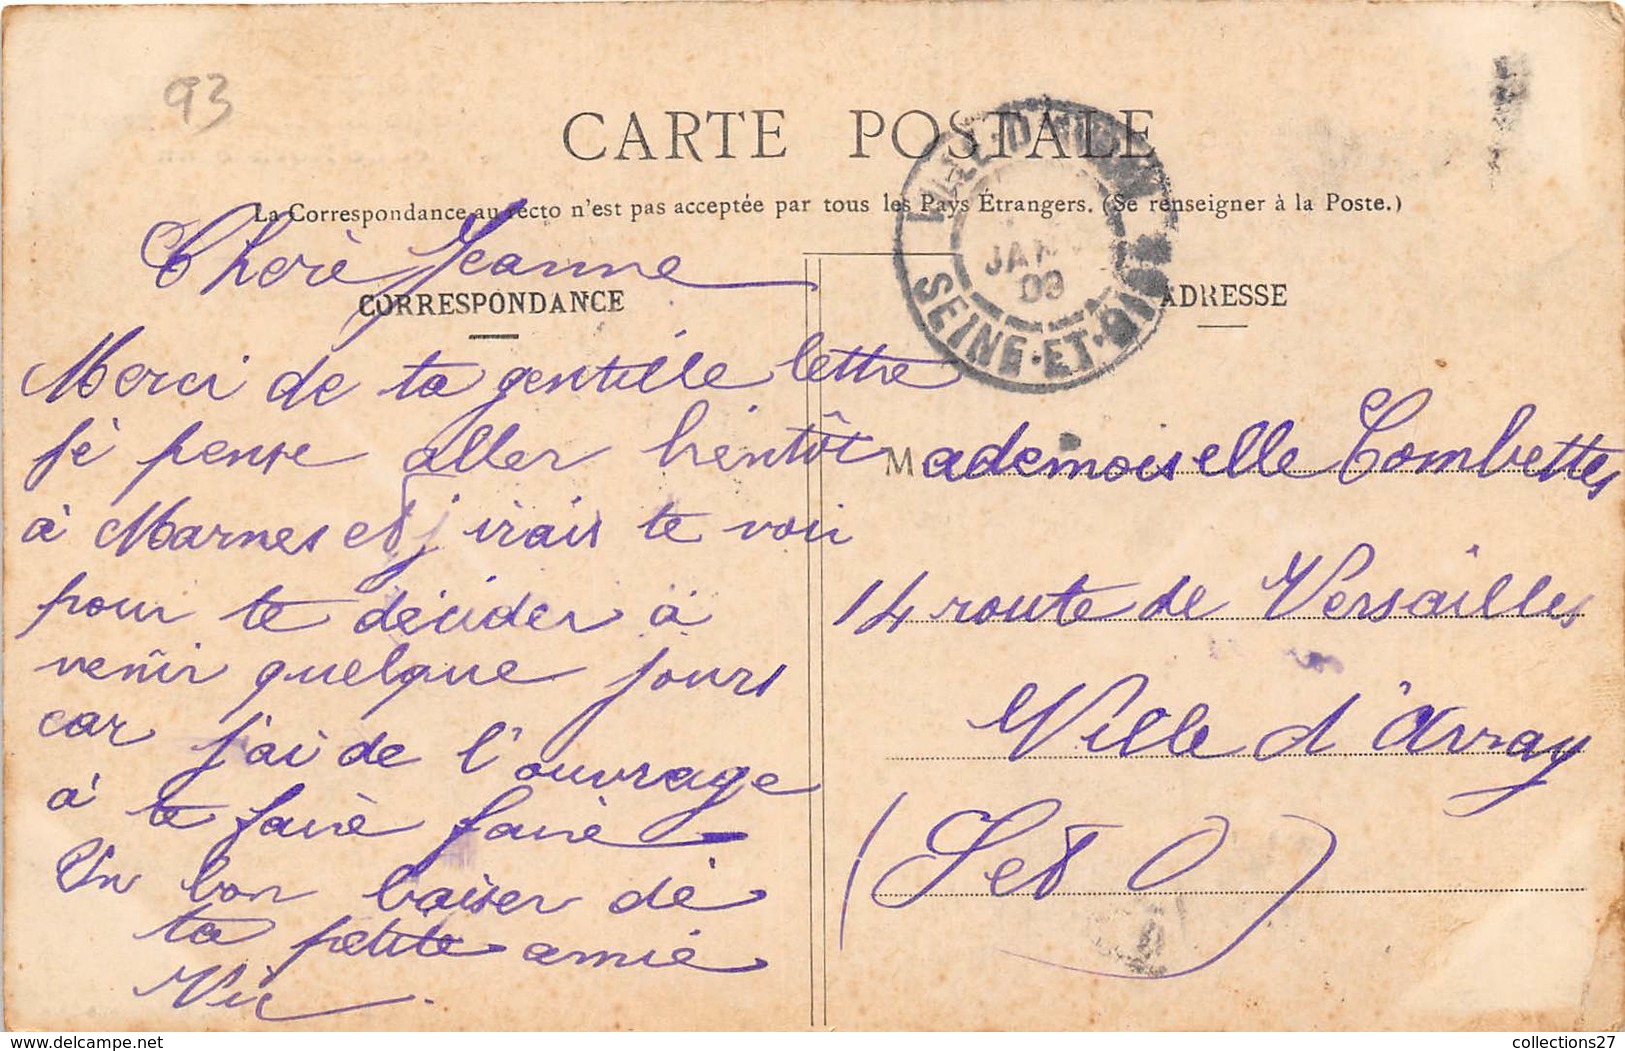 93
CARTE POSTALE
La Correspondance au recto n'est pas acceptée par tous les Pays Étrangers. (Se renseigner à la Poste.)
CORRESPONDANCE
Cherè Jeanne
Merci de ta gentille lettre
jè pense aller bientôt
à Marnes et j'irais te voir
pour te décider à
venir quelque jours
car j'ai de l'ouvrage
à te fairè fairè
Un bon baiser dè
ta petite amiè
ADRESSE
Mademoiselle Combettes
14 route de Versailles
Ville d'Avray
(S et O)
VILLE-D'AVRAY
JANV
09
SEINE-ET-OISE
collections27